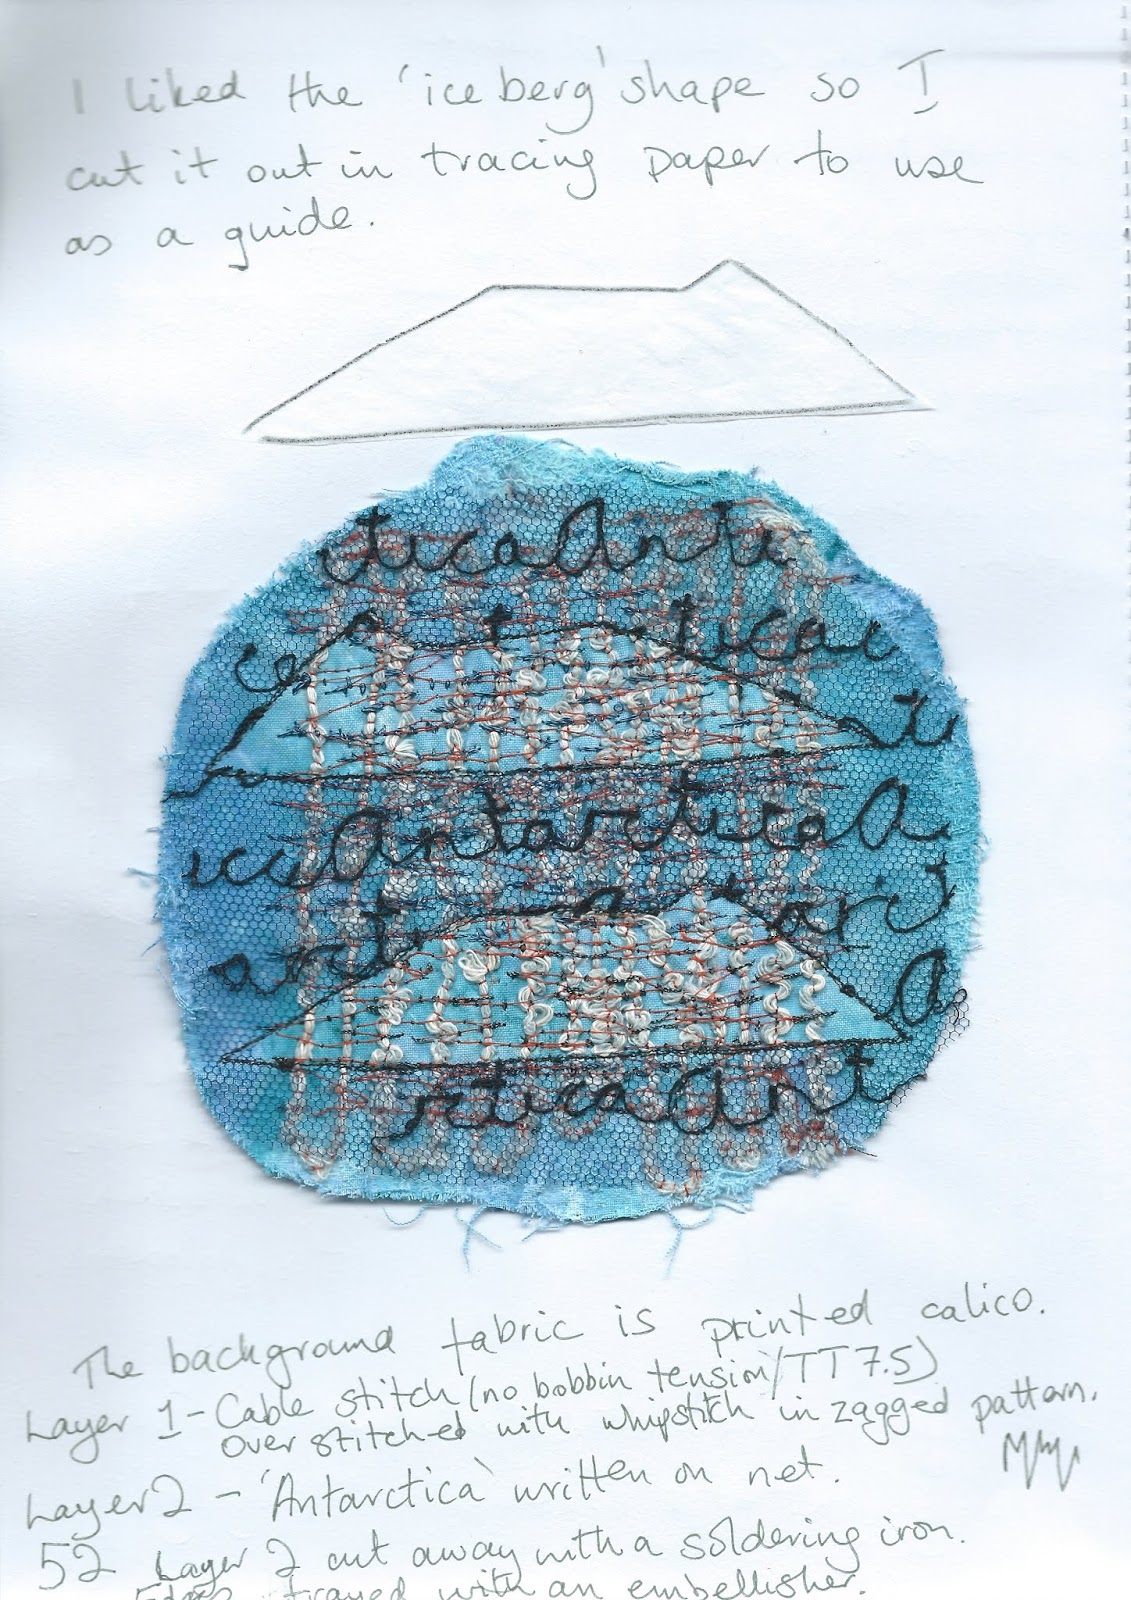 I liked the 'iceberg' shape so I
cut it out in tracing paper to use
as a guide.
cticaAntc
ce t ticaa
cti
iccaAntarcticaA
ant arct
A
rcticaAnt
The background fabric is printed calico.
Layer 1 - Cable stitch (no bobbin tension/TT7.5)
over stitched with whipstitch in zagged pattern.
Layer 2 - 'Antarctica' written on net.
52 Layer 2 cut away with a soldering iron.
Edges frayed with an embellisher.